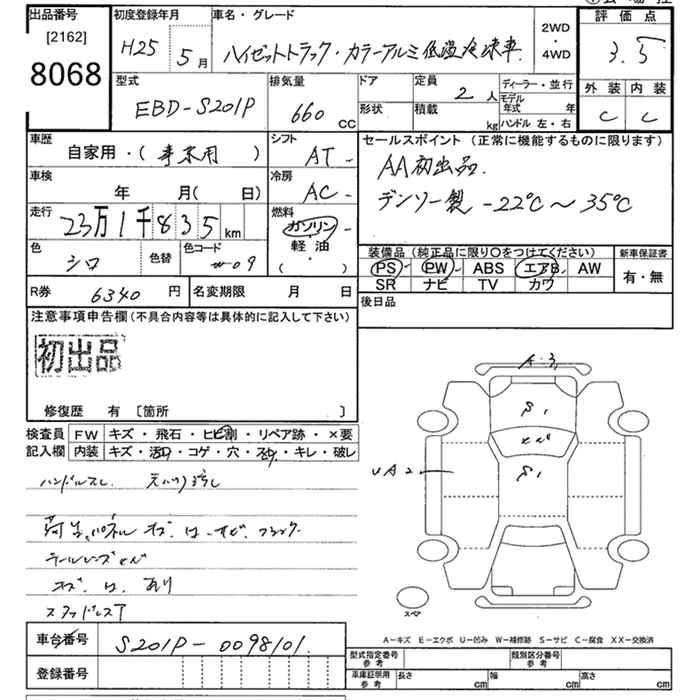 出品番号
[2162]
8068
初度登録年月
H25 5月
車名・グレード
ハイゼットトラック・カラーアルミ低温冷凍車
2WD
・
4WD
評価点
3.5
外装 内装
C C
型式
EBD-S201P
排気量
660 CC
ドア
形状
定員 2 人
積載 kg
ディーラー・並行
モデル
年式 年
ハンドル 左・右
車歴
自家用・( 事業用 )
シフト
AT
車検
年 月( 日)
冷房
AC
走行
23万1千835 km
燃料
ガソリン
軽油
( ・ )
色
シロ
色替
色コード
W09
セールスポイント (正常に機能するものに限ります)
AA初出品
デンソー製 -22℃~35℃
装備品 (純正品に限り〇をつけてください)
PS PW ABS エアB AW
SR ナビ TV カワ
新車保証書
有・無
R券 6340 円
名変期限 月 日
後日品
注意事項申告欄 (不具合内容等は具体的に記入して下さい)
初出品
修復歴 有 〔箇所 〕
検査員
記入欄
FW キズ・飛石・ヒビ割・リペア跡・×要
内装 キズ・汚・コゲ・穴・スレ・キレ・破レ
ハンドルスレ
A3
UA2
スペア
A-キズ E-エクボ U-凹み W-補修跡 S-サビ C-腐食 XX-交換済
車台番号 S201P-0098101
登録番号
型式指定番号
参考
類別区分番号
参考
車庫証明用
参考
長さ cm 幅 cm 高さ cm